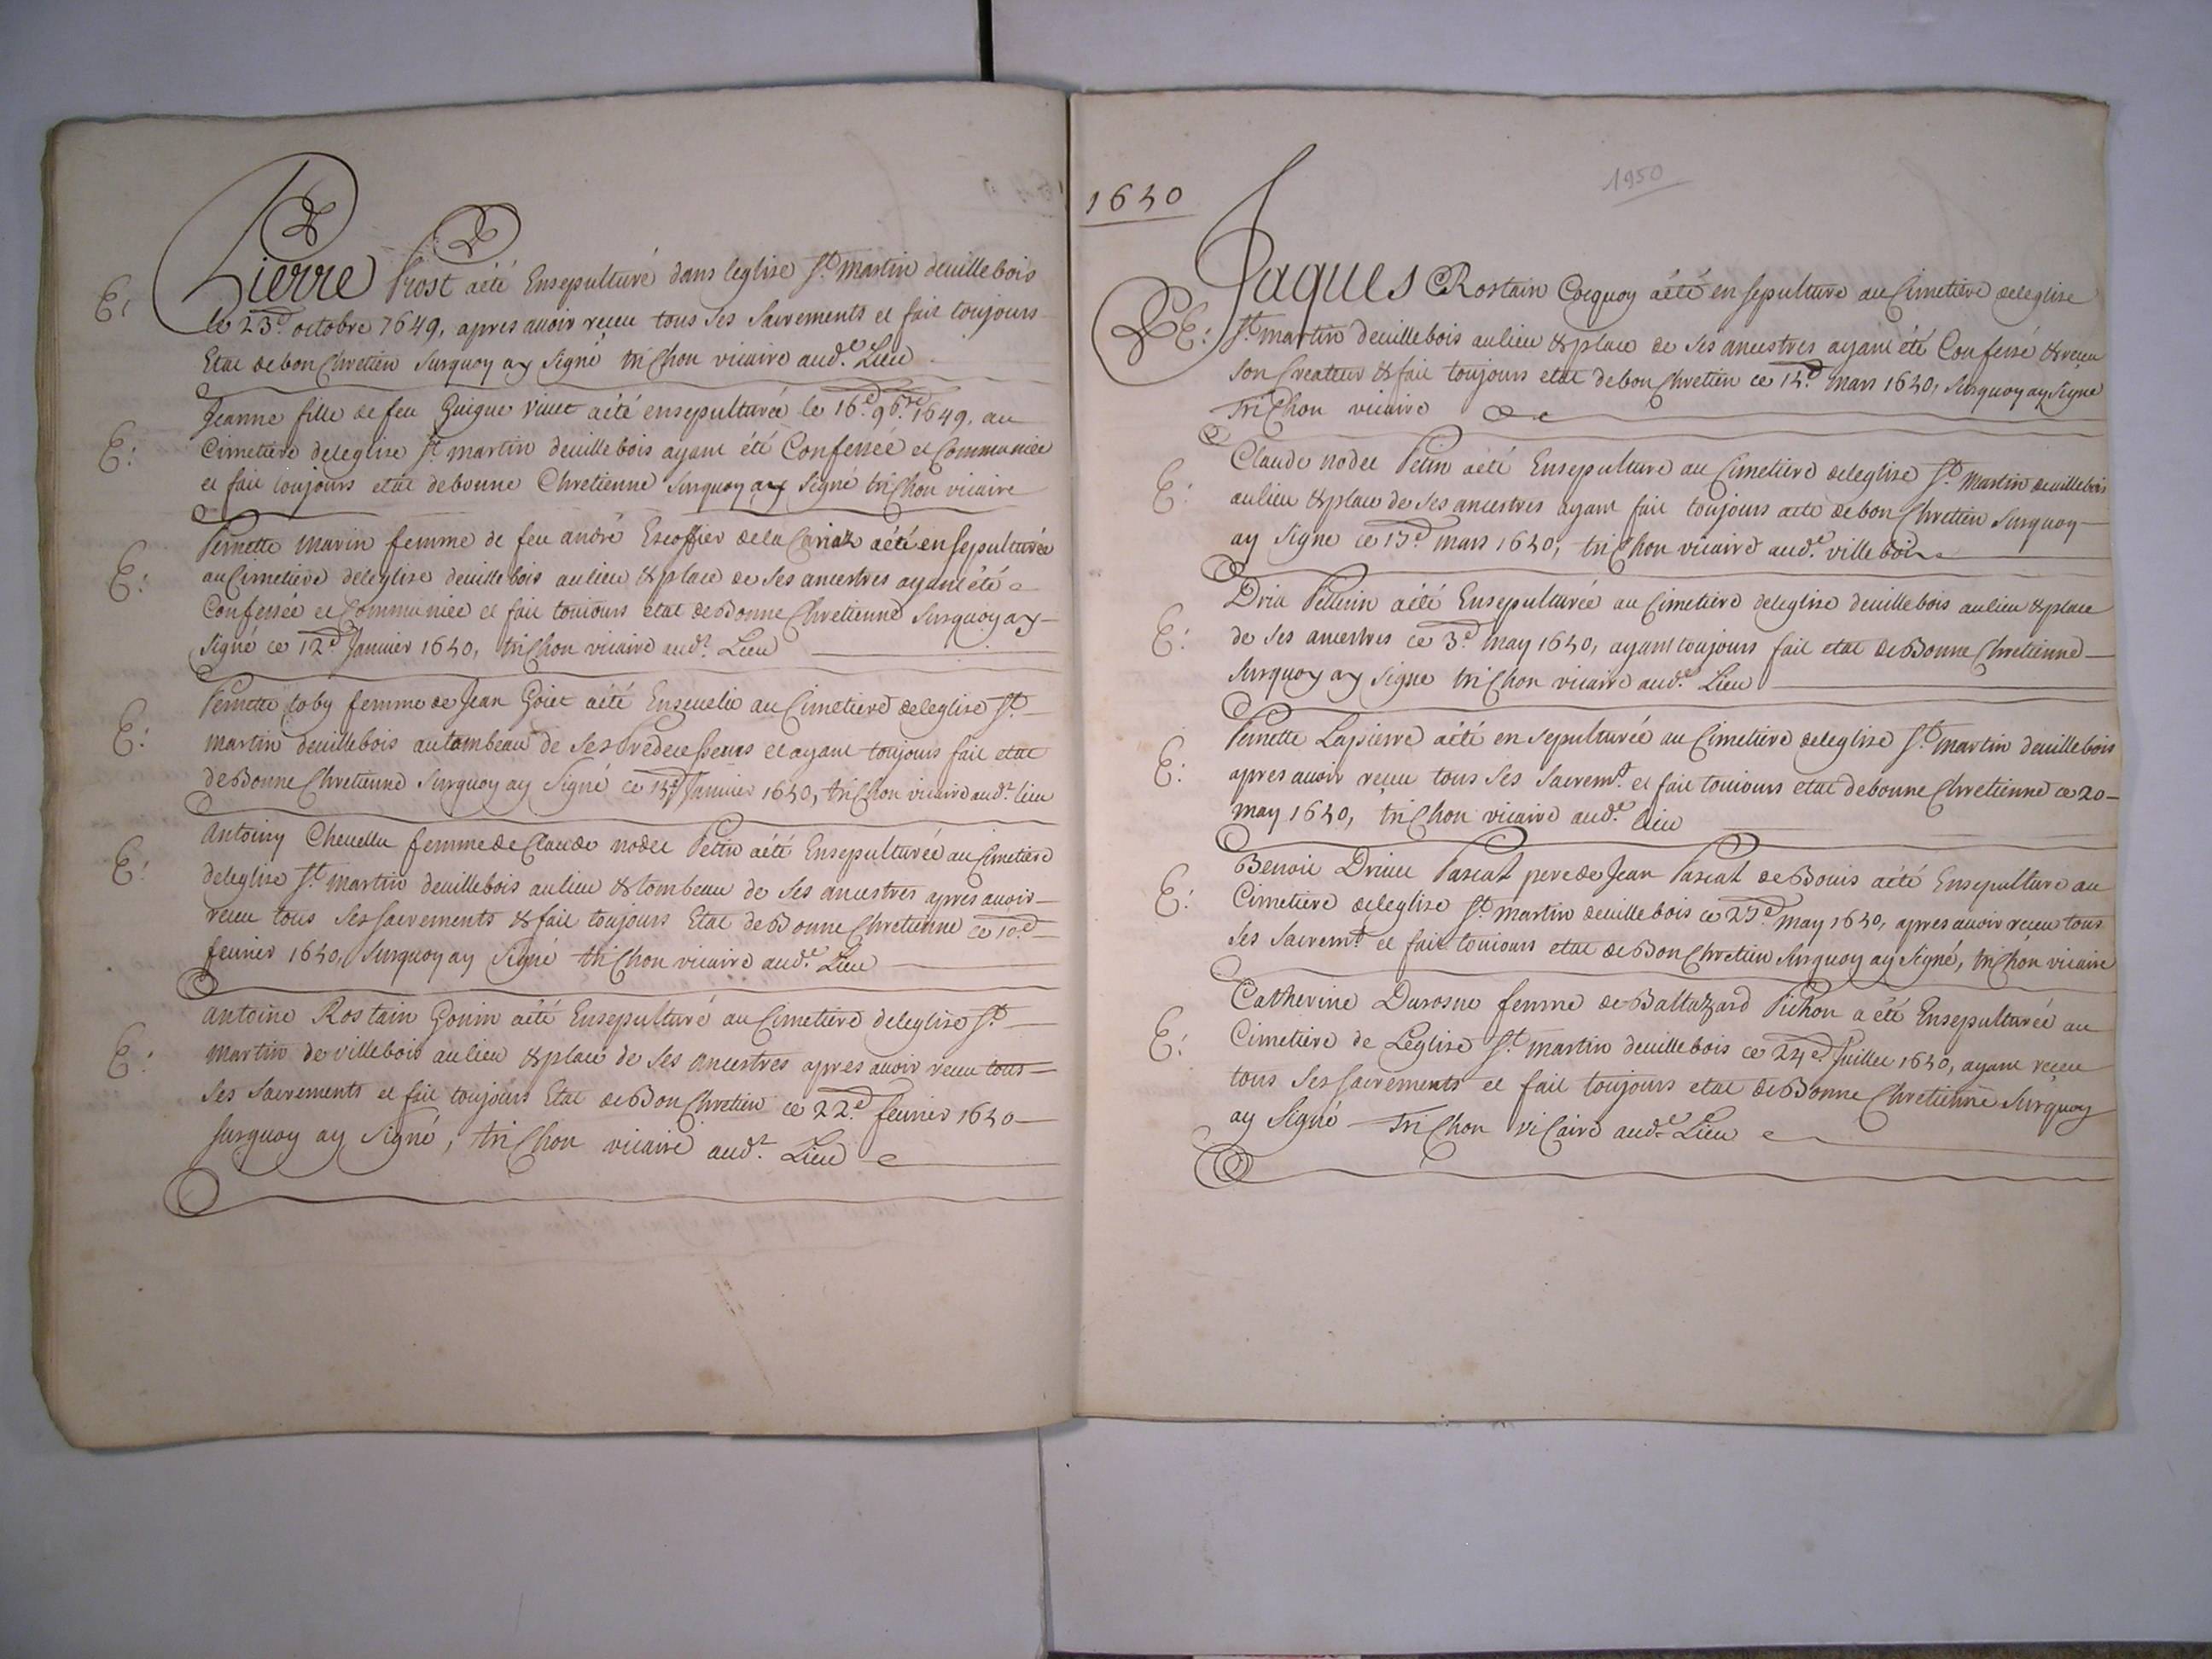 E:
Pierre Prost aété Ensepulturé dans leglise St. martin deuillebois
le 23e. octobre 1649, apres auoir reçeu tous ses Sacrements et fait toujours
Etat de bon Chretien surquoy ay Signé triChon vicaire aude. Lieu
Jeanne fille de feu Guigue Viuet aété ensepulturée le 16e. 9bre. 1649. au
E:
Cimetiere deleglise St. martin deuillebois ayant été Confessée et Communiée
et fait toujours etat debonne Chretienne surquoy ay signé triChon vicaire
Pernette Marin femme de feu andré Escoffier dela Cariaz aété ensepulturée
E:
au Cimetiere deleglise deuillebois aulieu & place de ses ancestres ayant été
Confessée et Communiée et fait toujours etat de Bonne Chretienne surquoy ay
signé ce 12e. Januier 1650, triChon vicaire aude. Lieu
Pernette toby femme de Jean Goiet aété Enseuelie au Cimetiere deleglise St.
E:
martin deuillebois autombeau de ses Predecesseurs et ayant toujours fait etat
de Bonne Chretienne surquoy ay Signé ce 15e. Januier 1650, triChon vicaire aude. lieu
Antoiny Cheuellu femme de Claude nodet Petin aété Ensepulturée au Cimetiere
E:
deleglise St. martin deuillebois aulieu & tombeau de ses ancestres apres auoir
receu tous ses sacrements & fait toujours Etat de Bonne Chretienne ce 10e.
feurier 1650, surquoy ay Signé triChon vicaire aude. Lieu
antoine Rostain Gonin aété Ensepulturé au Cimetiere deleglise St.
E:
Martin de villebois aulieu & place de ses ancestres apres auoir receu tous
ses sacrements et fait toujours Etat de Bon Chretien ce 22e. feurier 1650
surquoy ay Signé, triChon vicaire aude. Lieu
1650
1950
Jaques Rostain Cocquoy aété ensepulture au Cimetiere deleglise
E:
St. martin deuillebois aulieu & place de ses ancestres ayant été Confessé & receu
son Createur & fait toujours etat debon Chretien ce 14e. Mars 1650, surquoy ay Signe
TriChon vicaire
Claude nodet Petin aété Ensepulture au Cimetiere deleglise St. Martin deuillebois
E:
aulieu & place de ses ancestres ayant fait toujours acte de bon Chretien surquoy
ay signe ce 15e. mars 1650, triChon vicaire aude. villebois
Dria Pellerin aété Ensepulturée au Cimetiere deleglise deuillebois aulieu & place
E:
de ses ancestres ce 3e. may 1650, ayant toujours fait etat de Bonne Chretienne
surquoy ay signe triChon vicaire aude. Lieu
Pernette Lapierre aété ensepulturée au Cimetiere deleglise St. martin deuillebois
E:
apres auoir reçeu tous ses sacremt. et fait toujours etat debonne Chretienne ce 20
may 1650, triChon vicaire aude. lieu
Benoit Driuet Pascal pere de Jean Pascal de Bouis aété Ensepulture au
E:
Cimetiere deleglise St. martin deuillebois ce 25e. may 1650, apres auoir receu tous
ses sacremt. et fait toujours etat de Bon Chretien surquoy ay Signé, triChon vicaire
Catherine Durosne femme de Baltazard Pichon a été Ensepulturée au
E:
Cimetiere de Leglise St. martin deuillebois ce 24e. Juillet 1650, ayant receu
tous ses sacrements et fait toujours etat de Bonne Chretienne surquoy
ay Signé TriChon viCaire aude. Lieu